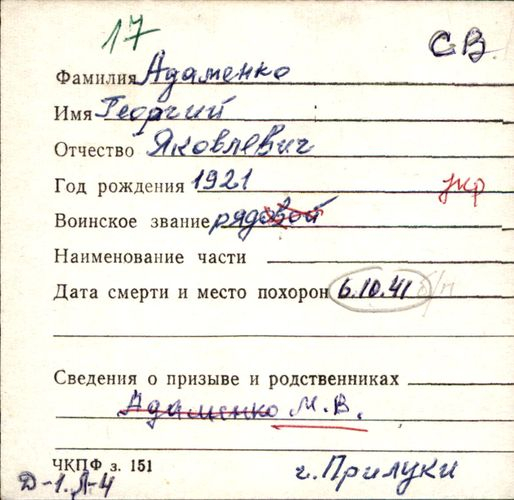 17
СВ
Фамилия Адаменко
Имя Георгий
Отчество Яковлевич
Год рождения 1921
укр
Воинское звание рядовой
Наименование части
Дата смерти и место похорон 6.10.41 б/п
Сведения о призыве и родственниках
Адаменко М.В.
ЧКПФ з. 151
г. Прилуки
Д-1. Л-4